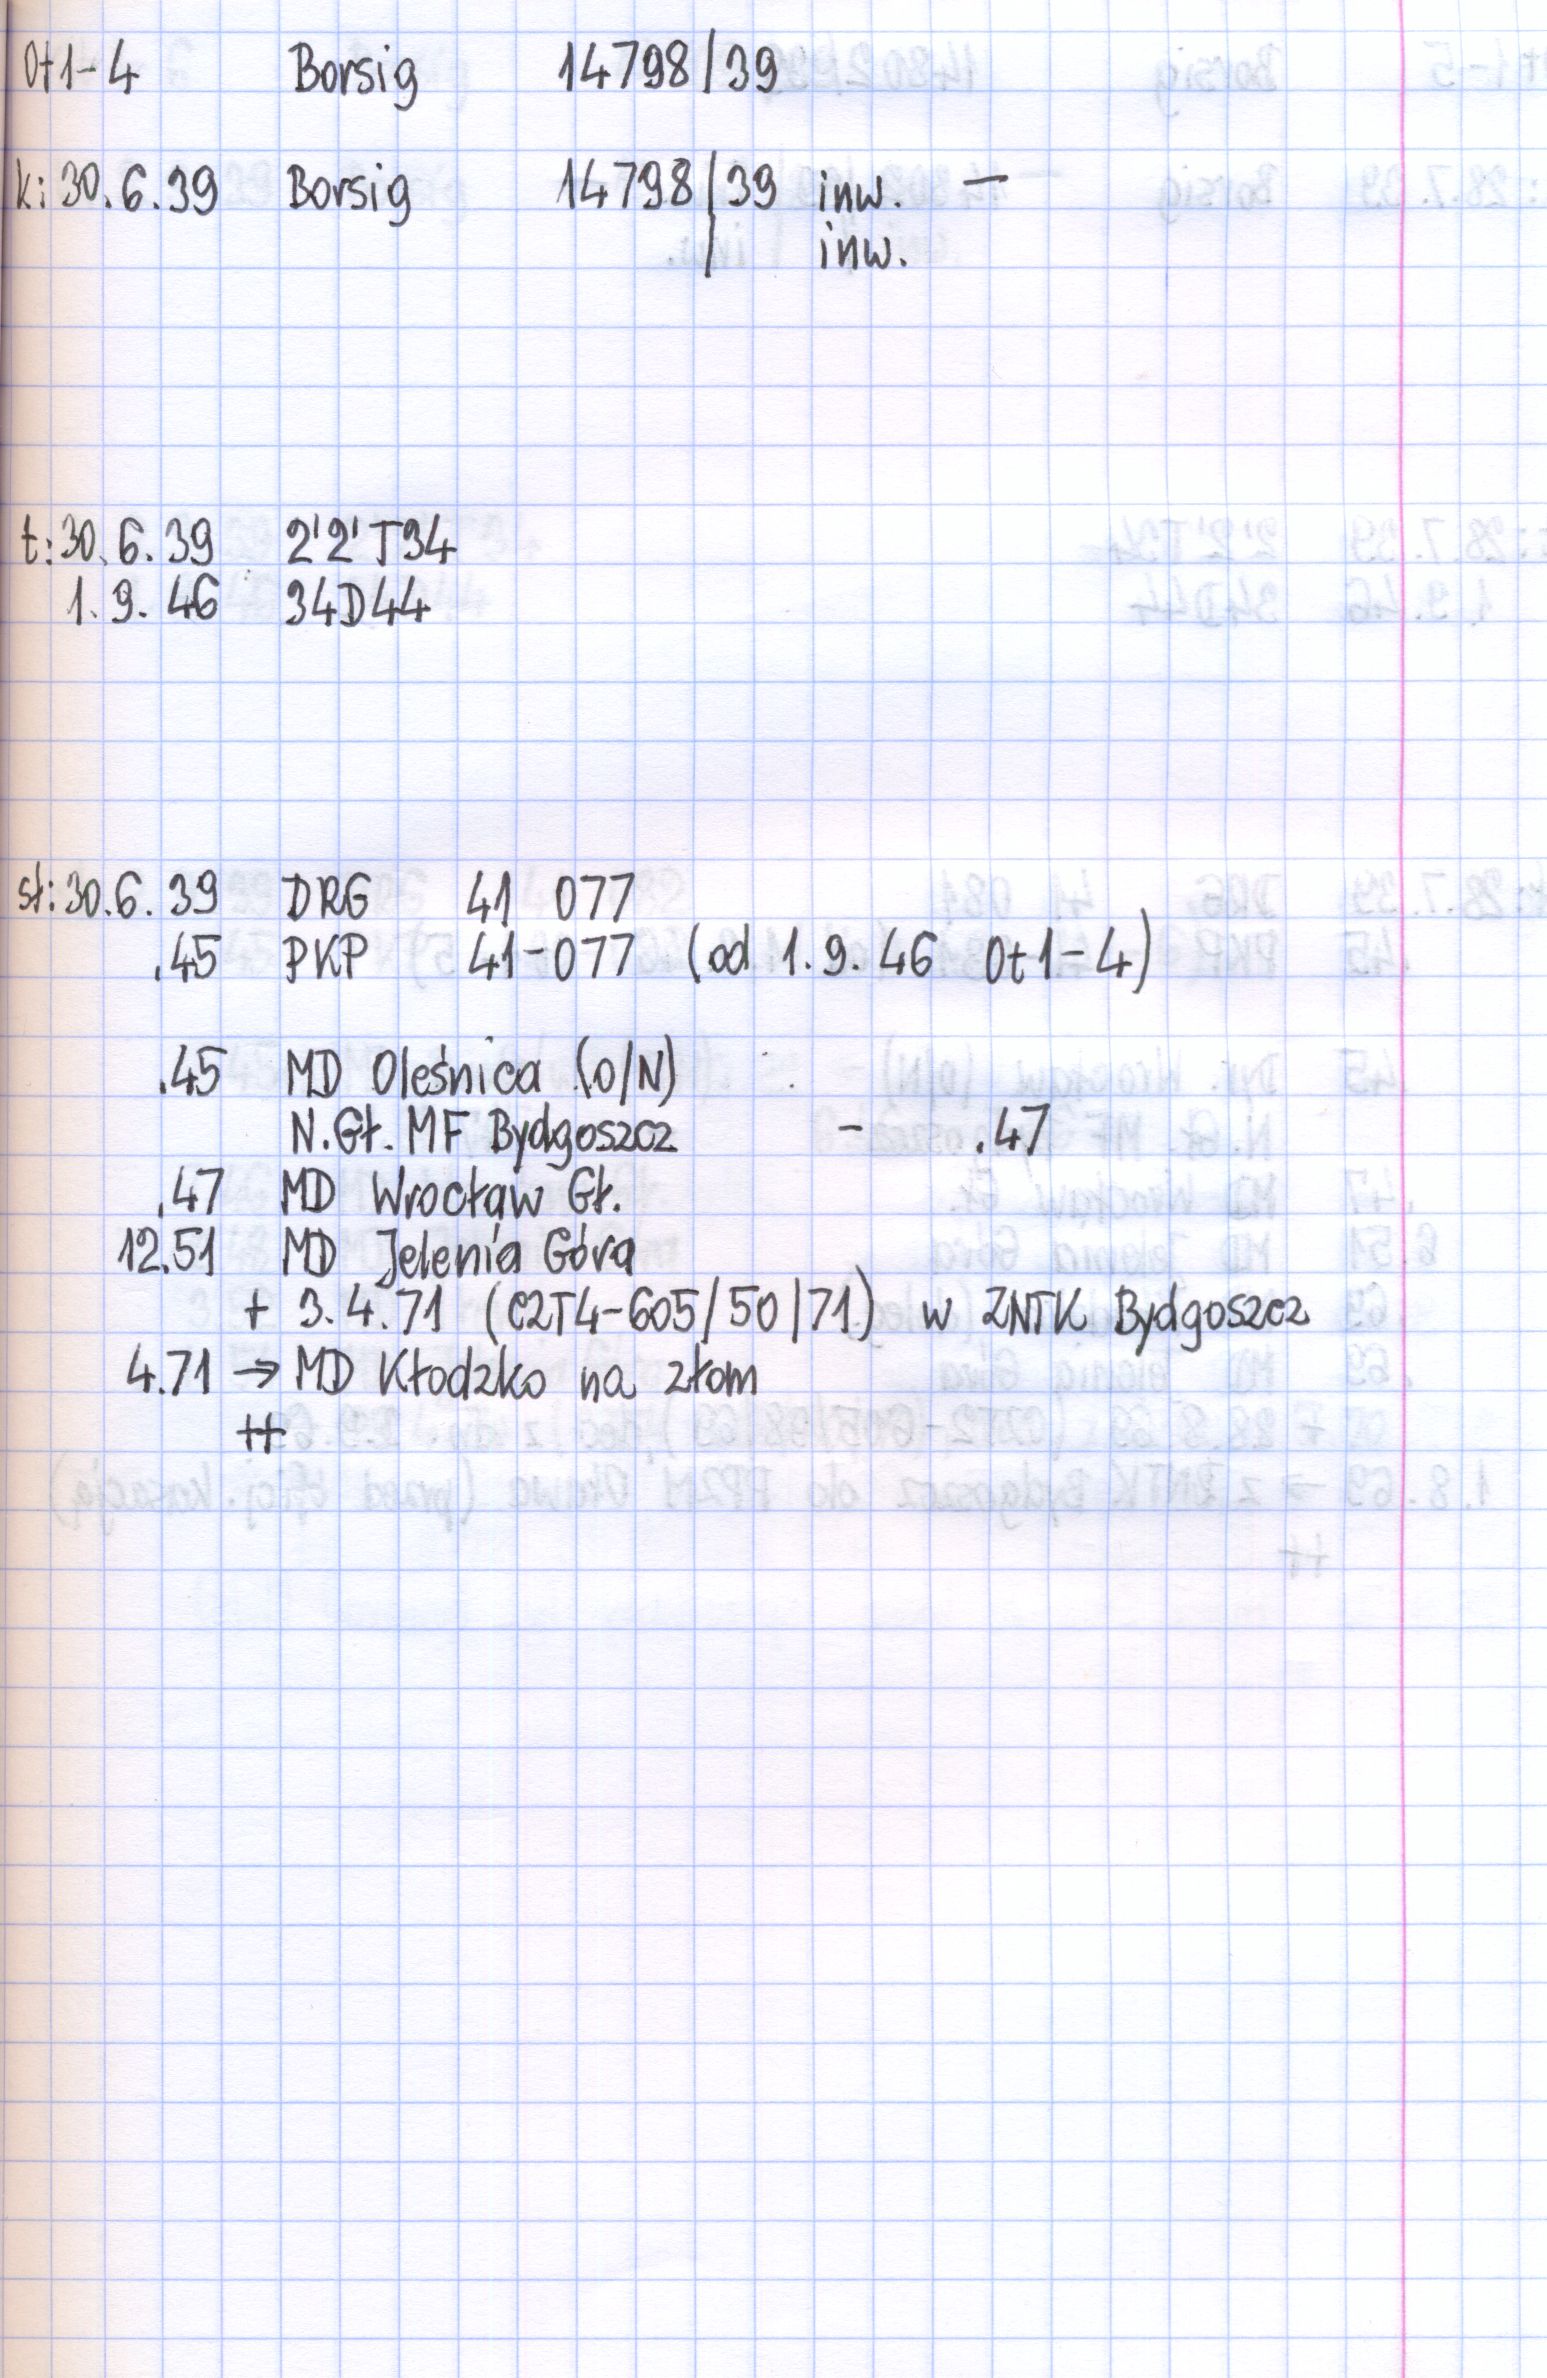 Ot1-4 Borsig 14798/39
k: 30.6.39 Borsig 14798/39 inw. —
/ inw.
t: 30.6.39 2'2'T34
1.9.46 34D44
st: 30.6.39 DRG 41 077
.45 PKP 41-077 (od 1.9.46 Ot1-4)
.45 MD Oleśnica (O/N)
N.Gł. MF Bydgoszcz - .47
.47 MD Wrocław Gł.
12.51 MD Jelenia Góra
+ 3.4.71 (CZT4-605/50/71) w ZNTK Bydgoszcz
4.71 → MD Kłodzko na złom
++